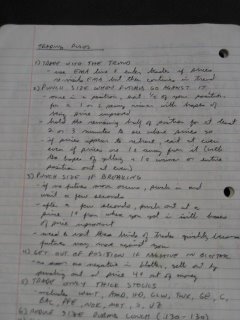 TRADING RULES
1) TRADE WITH THE TREND
- use EMA line to enter trades if prices
EMA but then continues in trend
2) PUNCH SIZE WHEN FUTURES GO AGAINST IT
- once in a position, out 1/2 of your position
for a 1 or 2 penny winner with hopes of
price improvement
- hold the remaining half of position for at least
2 or 3 minutes to see where prices go
- if prices appear to retrace, exit at even
even if prices are 1¢ away from it (with
the hopes of getting a 1¢ winner or entire
position out at even)
3) PUNCH SIZE IF BREAKING
- if no futures move occurs, punch in and
wait a few seconds
- after a few seconds, punch out at a
price 1¢ from where you got in with hopes
of price improvement
- need to exit these kinds of trades quickly because
futures may move against you
4) GET OUT OF POSITION IF NEGATIVE IN BLOTTER
- as soon as negative in blotter, sell out by
punching out at price 4¢ out of money
5) TRADE ONLY THICK STOCKS
- includes WMT, AMD, HD, GLW, TWX, GE, C,
BAC, PFE,
6) REDUCE SIZE DURING LUNCH (1130-130)